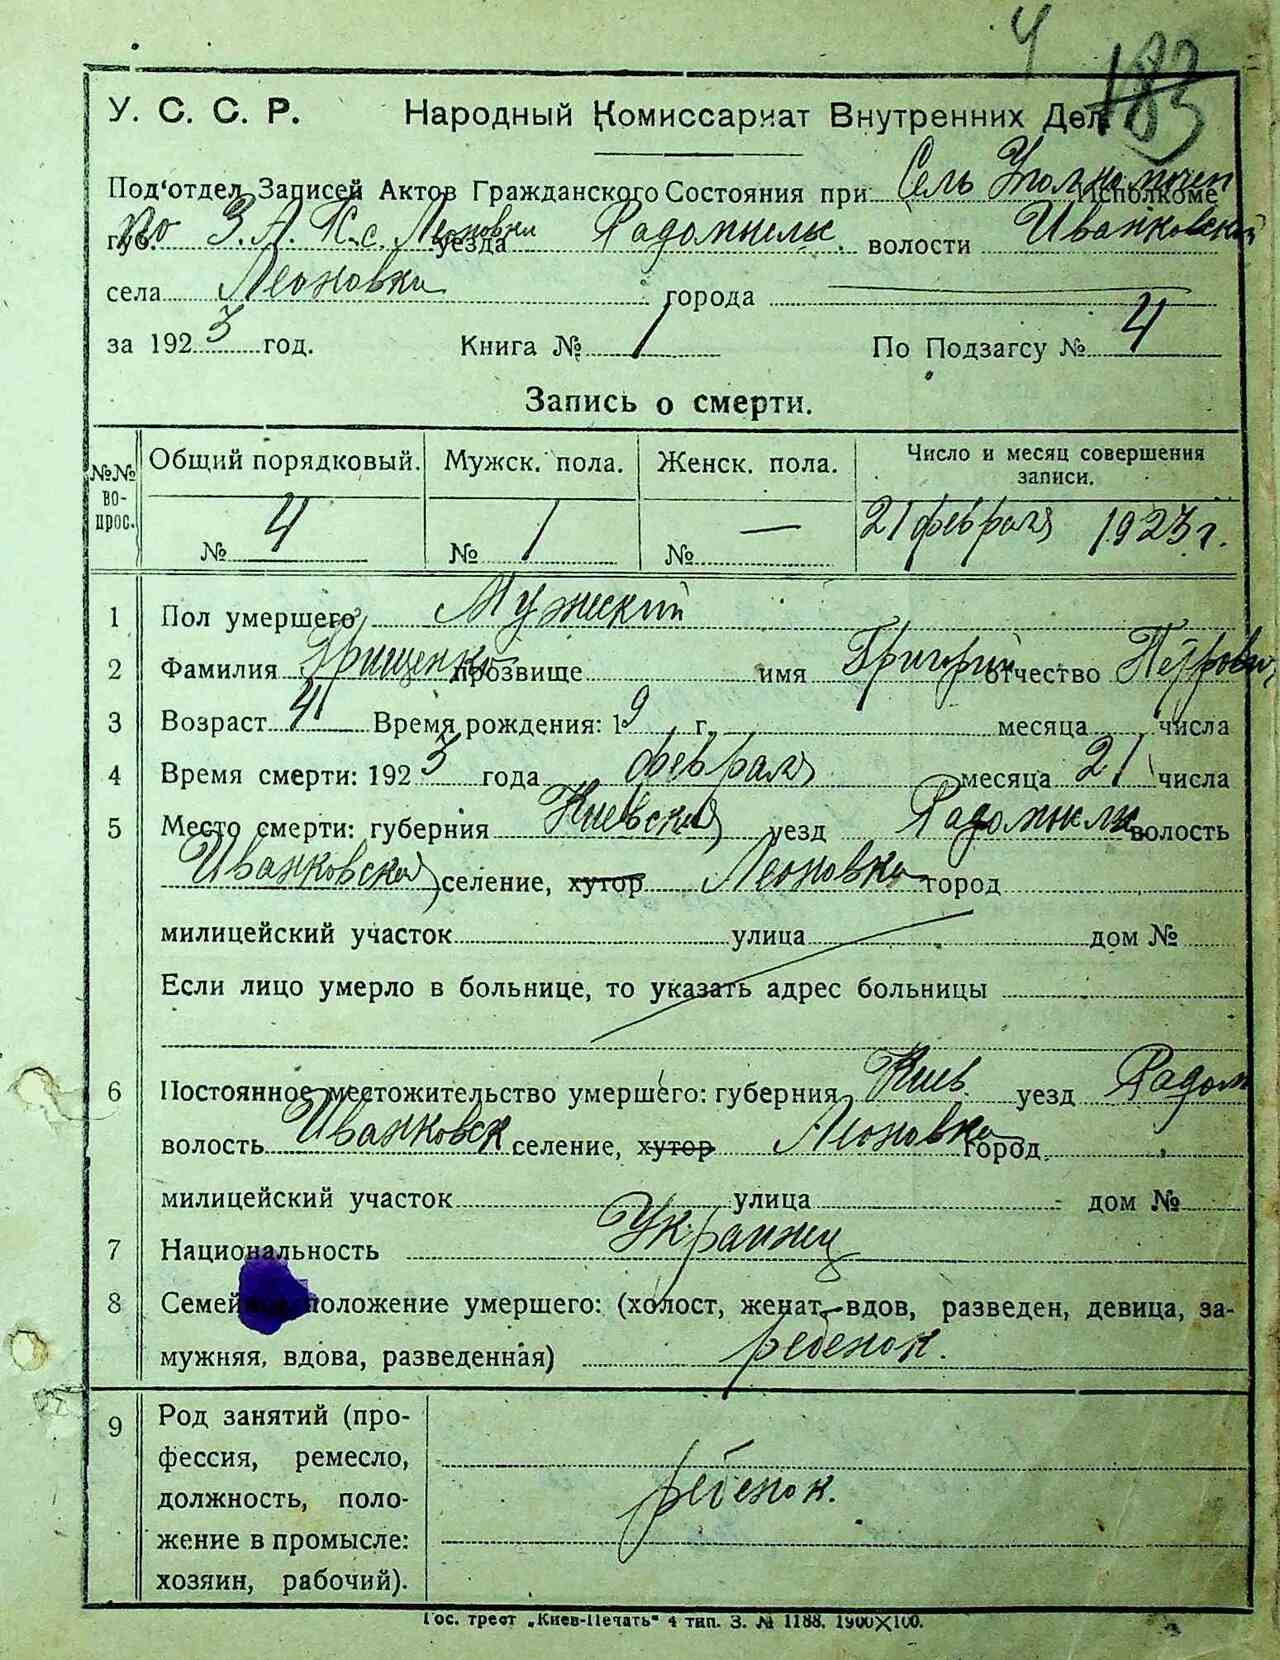 4
183
У. С. С. Р. Народный Комиссариат Внутренних Дел
Под'отдел Записей Актов Гражданского Состояния при Сель Уполномочен Исполкоме
губ. по З.А.П.с. Леоновки уезда Радомысльс. волости Иванковской
села Леоновки города
за 1923 год. Книга № 1 По Подзагсу № 4
Запись о смерти.
№№ во-прос. Общий порядковый. Мужск. пола. Женск. пола. Число и месяц совершения записи.
№ 4 № 1 № — 21 февраля 1923 г.
1 Пол умершего Мужский
2 Фамилия Грищенко прозвище имя Григорий отчество Петрович
3 Возраст 4 Время рождения: 19 г. месяца числа
4 Время смерти: 1923 года февраля месяца 21 числа
5 Место смерти: губерния Киевская уезд Радомысль волость
Иванковская селение, хутор Леоновка город
милицейский участок улица дом №
Если лицо умерло в больнице, то указать адрес больницы
6 Постоянное местожительство умершего: губерния Киев. уезд Радом
волость Иванковск селение, хутор Леоновка город
милицейский участок улица дом №
7 Национальность Украинец
8 Семейное положение умершего: (холост, женат, вдов, разведен, девица, за-
мужняя, вдова, разведенная) ребенок.
9 Род занятий (про-
фессия, ремесло,
должность, поло- ребенок.
жение в промысле:
хозяин, рабочий).
Гос. трест „Киев-Печать" 4 тип. З. № 1188. 1900X100.